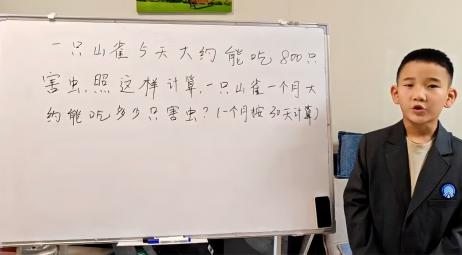 一只山雀5天大约能吃800只
害虫,照这样计算,一只山雀一个月大
约能吃多少只害虫?(一个月按30天计算)